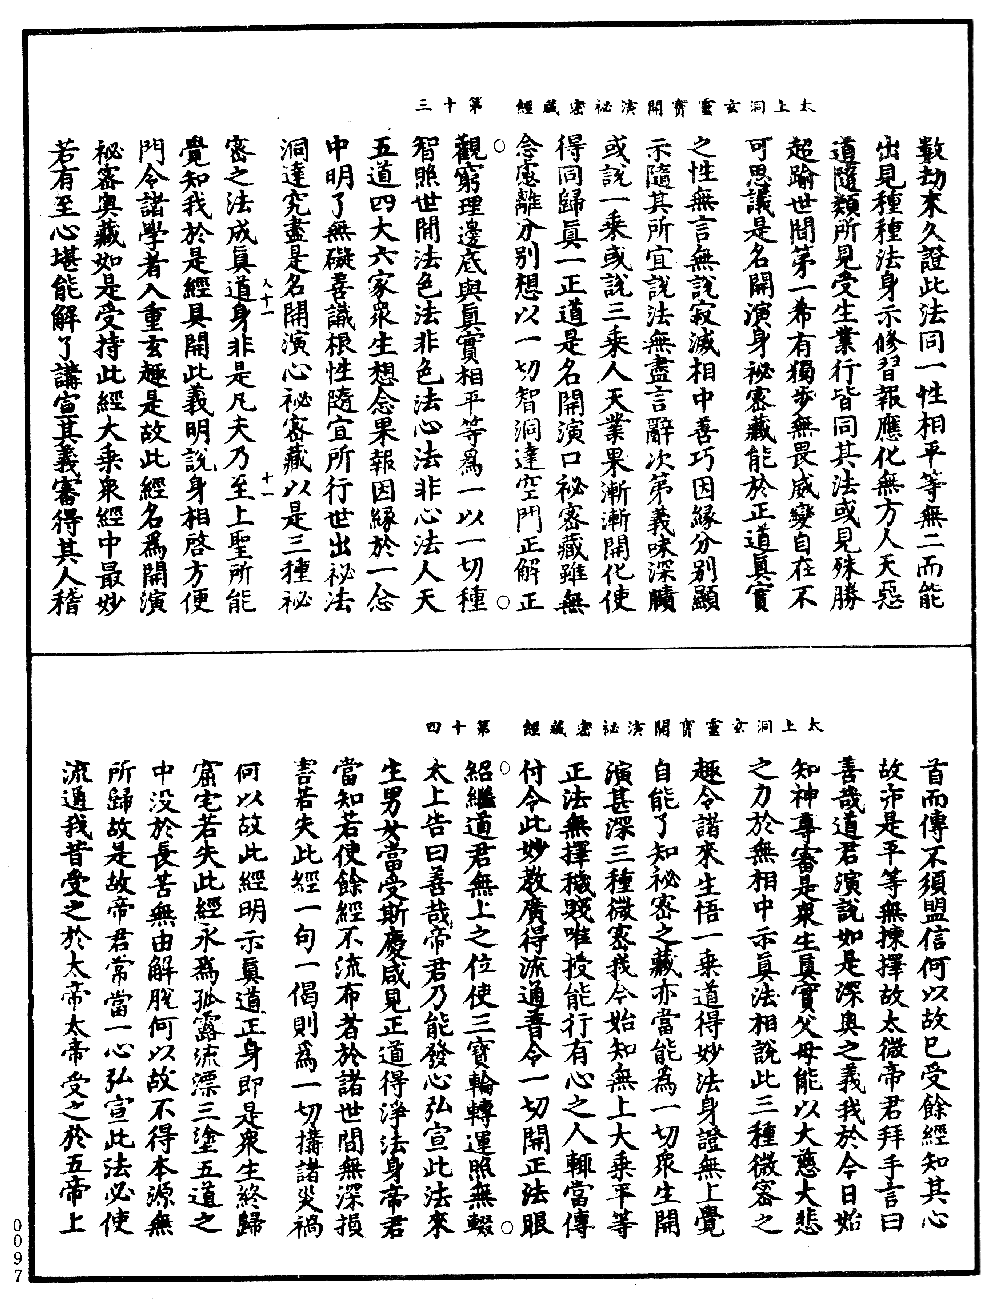 太上洞玄靈寶開演祕密藏經　第十三
數劫來久證此法同一性相平等無二而能
出見種種法身示修習報應化無方人天惡
道隨類所見受生業行皆同其法或見殊勝
超踰世間第一希有獨步無畏威變自在不
可思議是名開演身祕密藏能於正道真實
之性無言無說寂滅相中善巧因緣分別顯
示隨其所宜說法無盡言辭次第義味深曠
或說一乘或說三乘人天業果漸漸開化使
得同歸真一正道是名開演口祕密藏雖無
念慮離分別想以一切智洞達空門正解正
觀窮理邊底與真實相平等為一以一切種
智照世間法色法非色法心法非心法人天
五道四大六家衆生想念果報因緣於一念
中明了無礙善識根性隨宜所行世出祕法
洞達究盡是名開演心祕密藏以是三種祕
密之法成真道身非是凡夫乃至上聖所能
覺知我於是經具開此義明說身相啓方便
門令諸學者入重玄趣是故此經名為開演
祕密奧藏如是受持此經大乘衆經中最妙
若有至心堪能解了講宣其義審得其人稽
八十一　十一
太上洞玄靈寶開演祕密藏經　第十四
首而傳不須盟信何以故已受餘經知其心
故亦是平等無揀擇故太微帝君拜手言曰
善哉道君演說如是深奧之義我於今日始
知神尊審是衆生真實父母能以大慈大悲
之力於無相中示真法相說此三種微密之
趣令諸來生悟一乘道得妙法身證無上覺
自能了知祕密之藏亦當能為一切衆生開
演甚深三種微密我今始知無上大乘平等
正法無擇穢賤唯授能行有心之人輒當傳
付令此妙教廣得流通普令一切開正法眼
紹繼道君無上之位使三寶輪轉運照無輟
太上告曰善哉帝君乃能發心弘宣此法來
生男女當受斯慶咸見正道得淨法身帝君
當知若使餘經不流布者於諸世間無深損
害若失此經一句一偈則為一切搆諸災禍
何以故此經明示真道正身即是衆生終歸
窟宅若失此經永為孤露流漂三塗五道之
中没於長苦無由解脫何以故不得本源無
所歸故是故帝君常當一心弘宣此法必使
流通我昔受之於太帝太帝受之於五帝上
0097